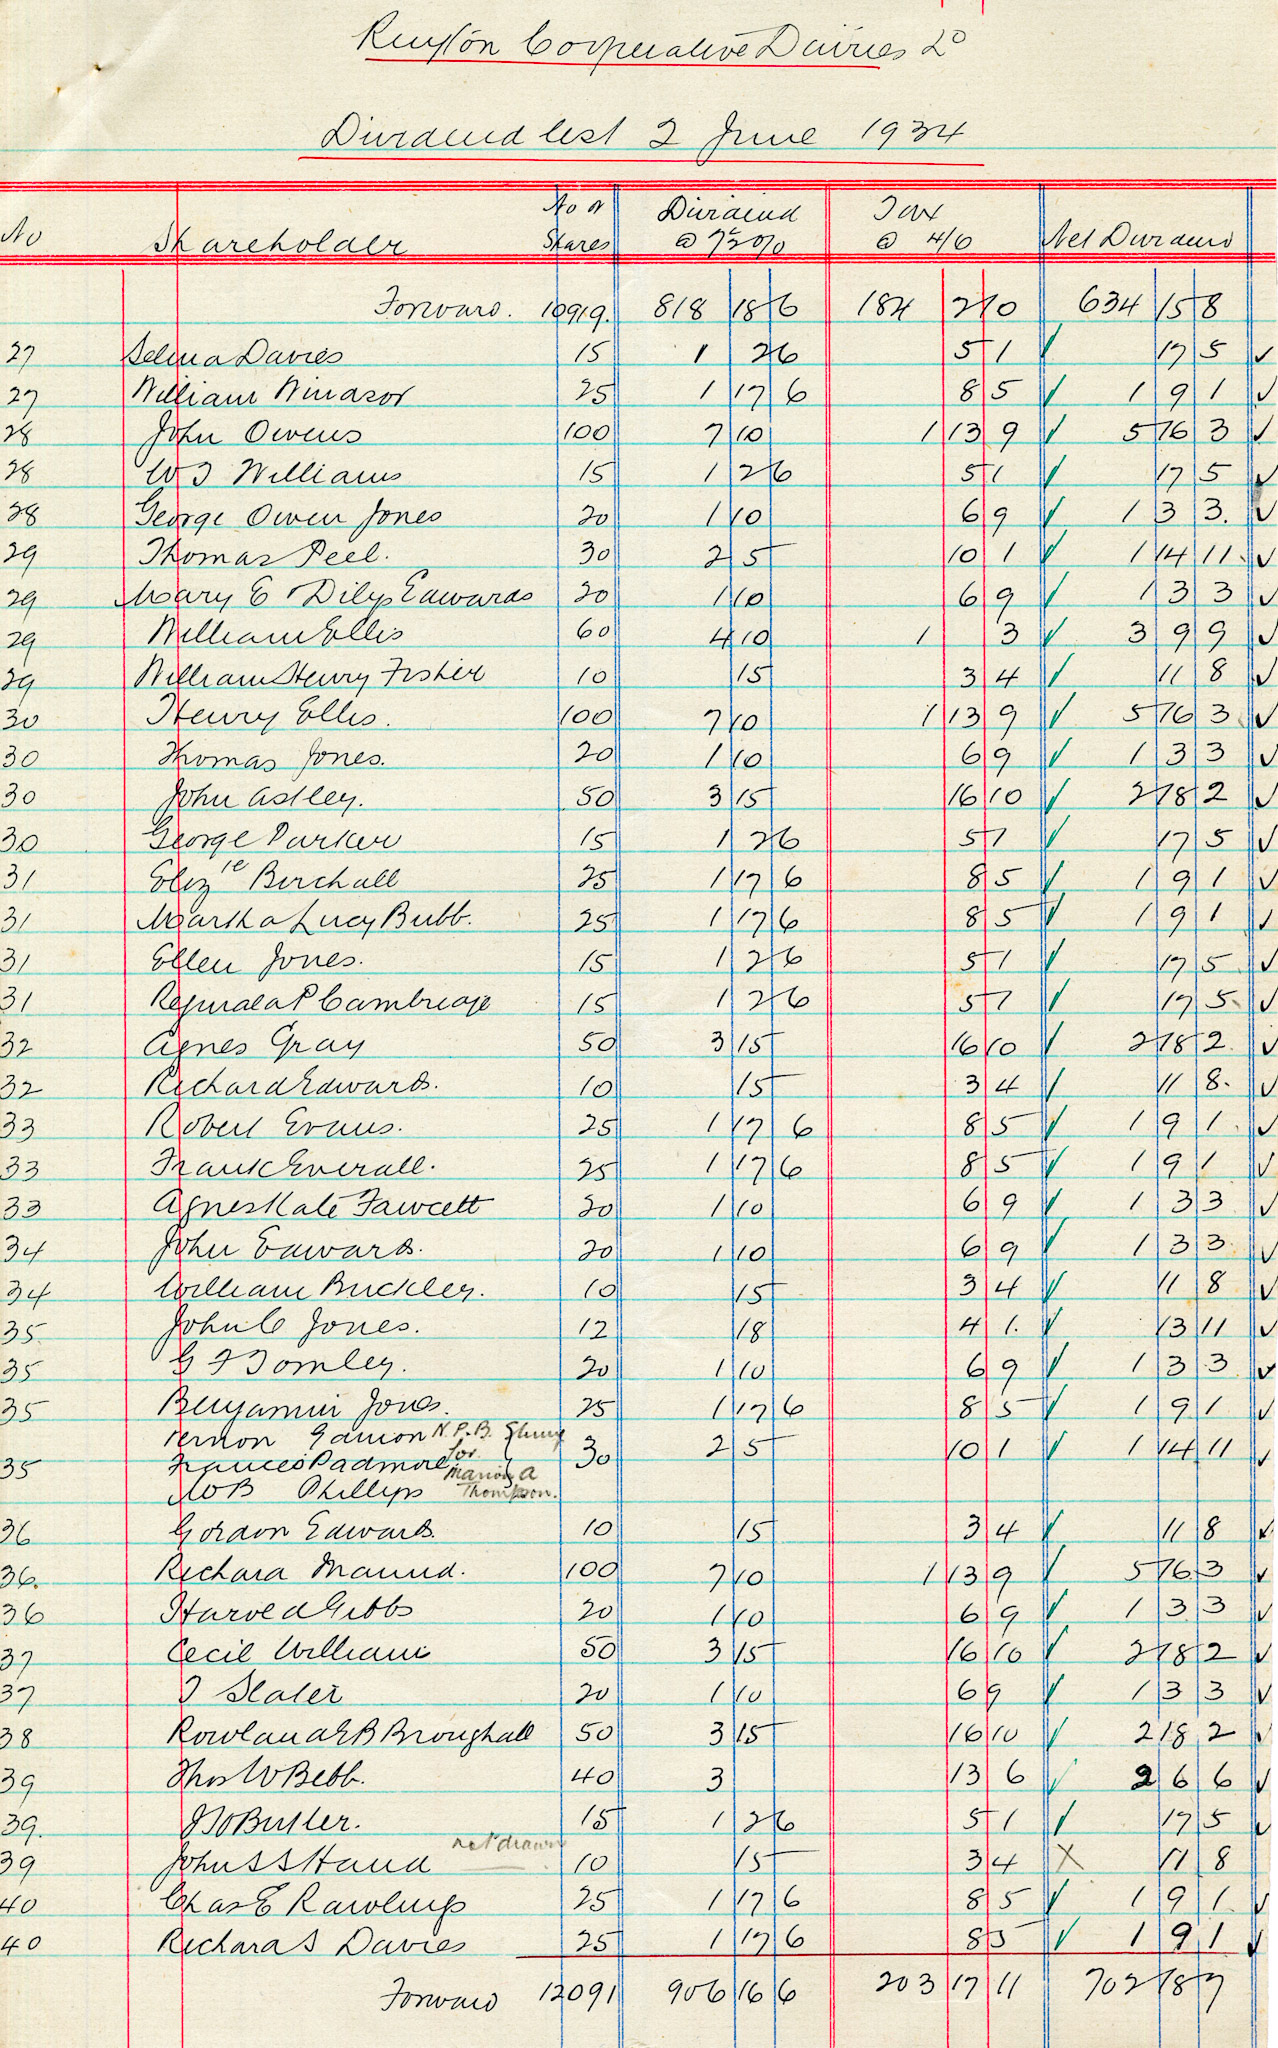 Ruyton Cooperative Dairies Ld
Dividend list 2 June 1934
No Shareholder No of Shares Dividend @ 7½% Tax @ 4/6 Net Dividend
Forward. 10919. 818 18 6 184 2 10 634 15 8
27 Selina Davies 15 1 2 6 5 1 ✓ 17 5 ✓
27 William Windsor 25 1 17 6 8 5 ✓ 1 9 1 ✓
28 John Owens 100 7 10 1 13 9 ✓ 5 16 3 ✓
28 W J Williams 15 1 2 6 5 1 ✓ 17 5 ✓
28 George Owen Jones 20 1 10 6 9 ✓ 1 3 3. ✓
29 Thomas Peel. 30 2 5 10 1 ✓ 1 14 11. ✓
29 Mary E Dilys Edwards 20 1 10 6 9 ✓ 1 3 3 ✓
29 William Ellis 60 4 10 1 3 ✓ 3 9 9 ✓
29 William Henry Fisher 10 15 3 4 ✓ 11 8 ✓
30 Henry Ellis. 100 7 10 1 13 9 ✓ 5 16 3 ✓
30 Thomas Jones. 20 1 10 6 9 ✓ 1 3 3 ✓
30 John Astley. 50 3 15 16 10 ✓ 2 18 2 ✓
30 George Parker 15 1 2 6 5 1 ✓ 17 5 ✓
31 Elizth Birchall 25 1 17 6 8 5 ✓ 1 9 1 ✓
31 Martha Lucy Bubb. 25 1 17 6 8 5 ✓ 1 9 1 ✓
31 Ellen Jones. 15 1 2 6 5 1 ✓ 17 5 ✓
31 Reginald P Cambridge 15 1 2 6 5 1 ✓ 17 5. ✓
32 Agnes Gray 50 3 15 16 10 ✓ 2 18 2. ✓
32 Richard Edwards. 10 15 3 4 ✓ 11 8. ✓
33 Robert Evans. 25 1 17 6 8 5 ✓ 1 9 1. ✓
33 Frank Everall. 25 1 17 6 8 5 ✓ 1 9 1 ✓
33 Agnes Kate Fawcett 20 1 10 6 9 ✓ 1 3 3 ✓
34 John Edwards. 20 1 10 6 9 ✓ 1 3 3 ✓
34 William Buckley. 10 15 3 4 ✓ 11 8 ✓
35. John C Jones. 12 18 4 1. ✓ 13 11 ✓
35 G F Tomley. 20 1 10 6 9 ✓ 1 3 3 ✓
35 Benjamin Jones. 25 1 17 6 8 5 ✓ 1 9 1 ✓
Vernon N.P.B.
35 Frances Padmore for 30 2 5 10 1 ✓ 1 14 11 ✓
Marion A
Phillips Thompson.
36 Gordon Edwards. 10 15 3 4 ✓ 11 8 ✓
36. Richard 100 7 10 1 13 9 ✓ 5 16 3 ✓
36 Harold Gibbs 20 1 10 6 9 ✓ 1 3 3 ✓
37 Cecil William 50 3 15 16 10 ✓ 2 18 2 ✓
37 J Slater 20 1 10 6 9 ✓ 1 3 3 ✓
38 Rowland E B Broughall 50 3 15 16 10 ✓ 2 18 2 ✓
39 Thos W Bebb. 40 3 13 6 ✓ 2 6 6 ✓
39. Butler. 15 1 2 6 5 1 ✓ 17 5 ✓
not drawn
39 John S S Hand 10 15 3 4 X 11 8
40 Chas E Rawlings 25 1 17 6 8 5 ✓ 1 9 1 ✓
40 Richard S Davies 25 1 17 6 8 5 ✓ 1 9 1 ✓
Forward 12091 906 16 6 203 17 11 702 18 7